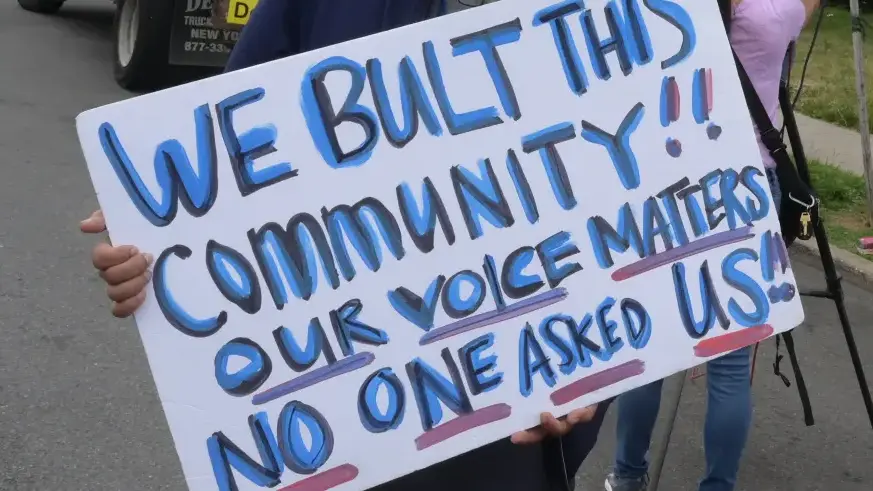 TRUCK
NEW YO
877-33
D
WE BULT THIS
COMMUNITY!!
OUR VOICE MATTERS
NO ONE ASKED US!!